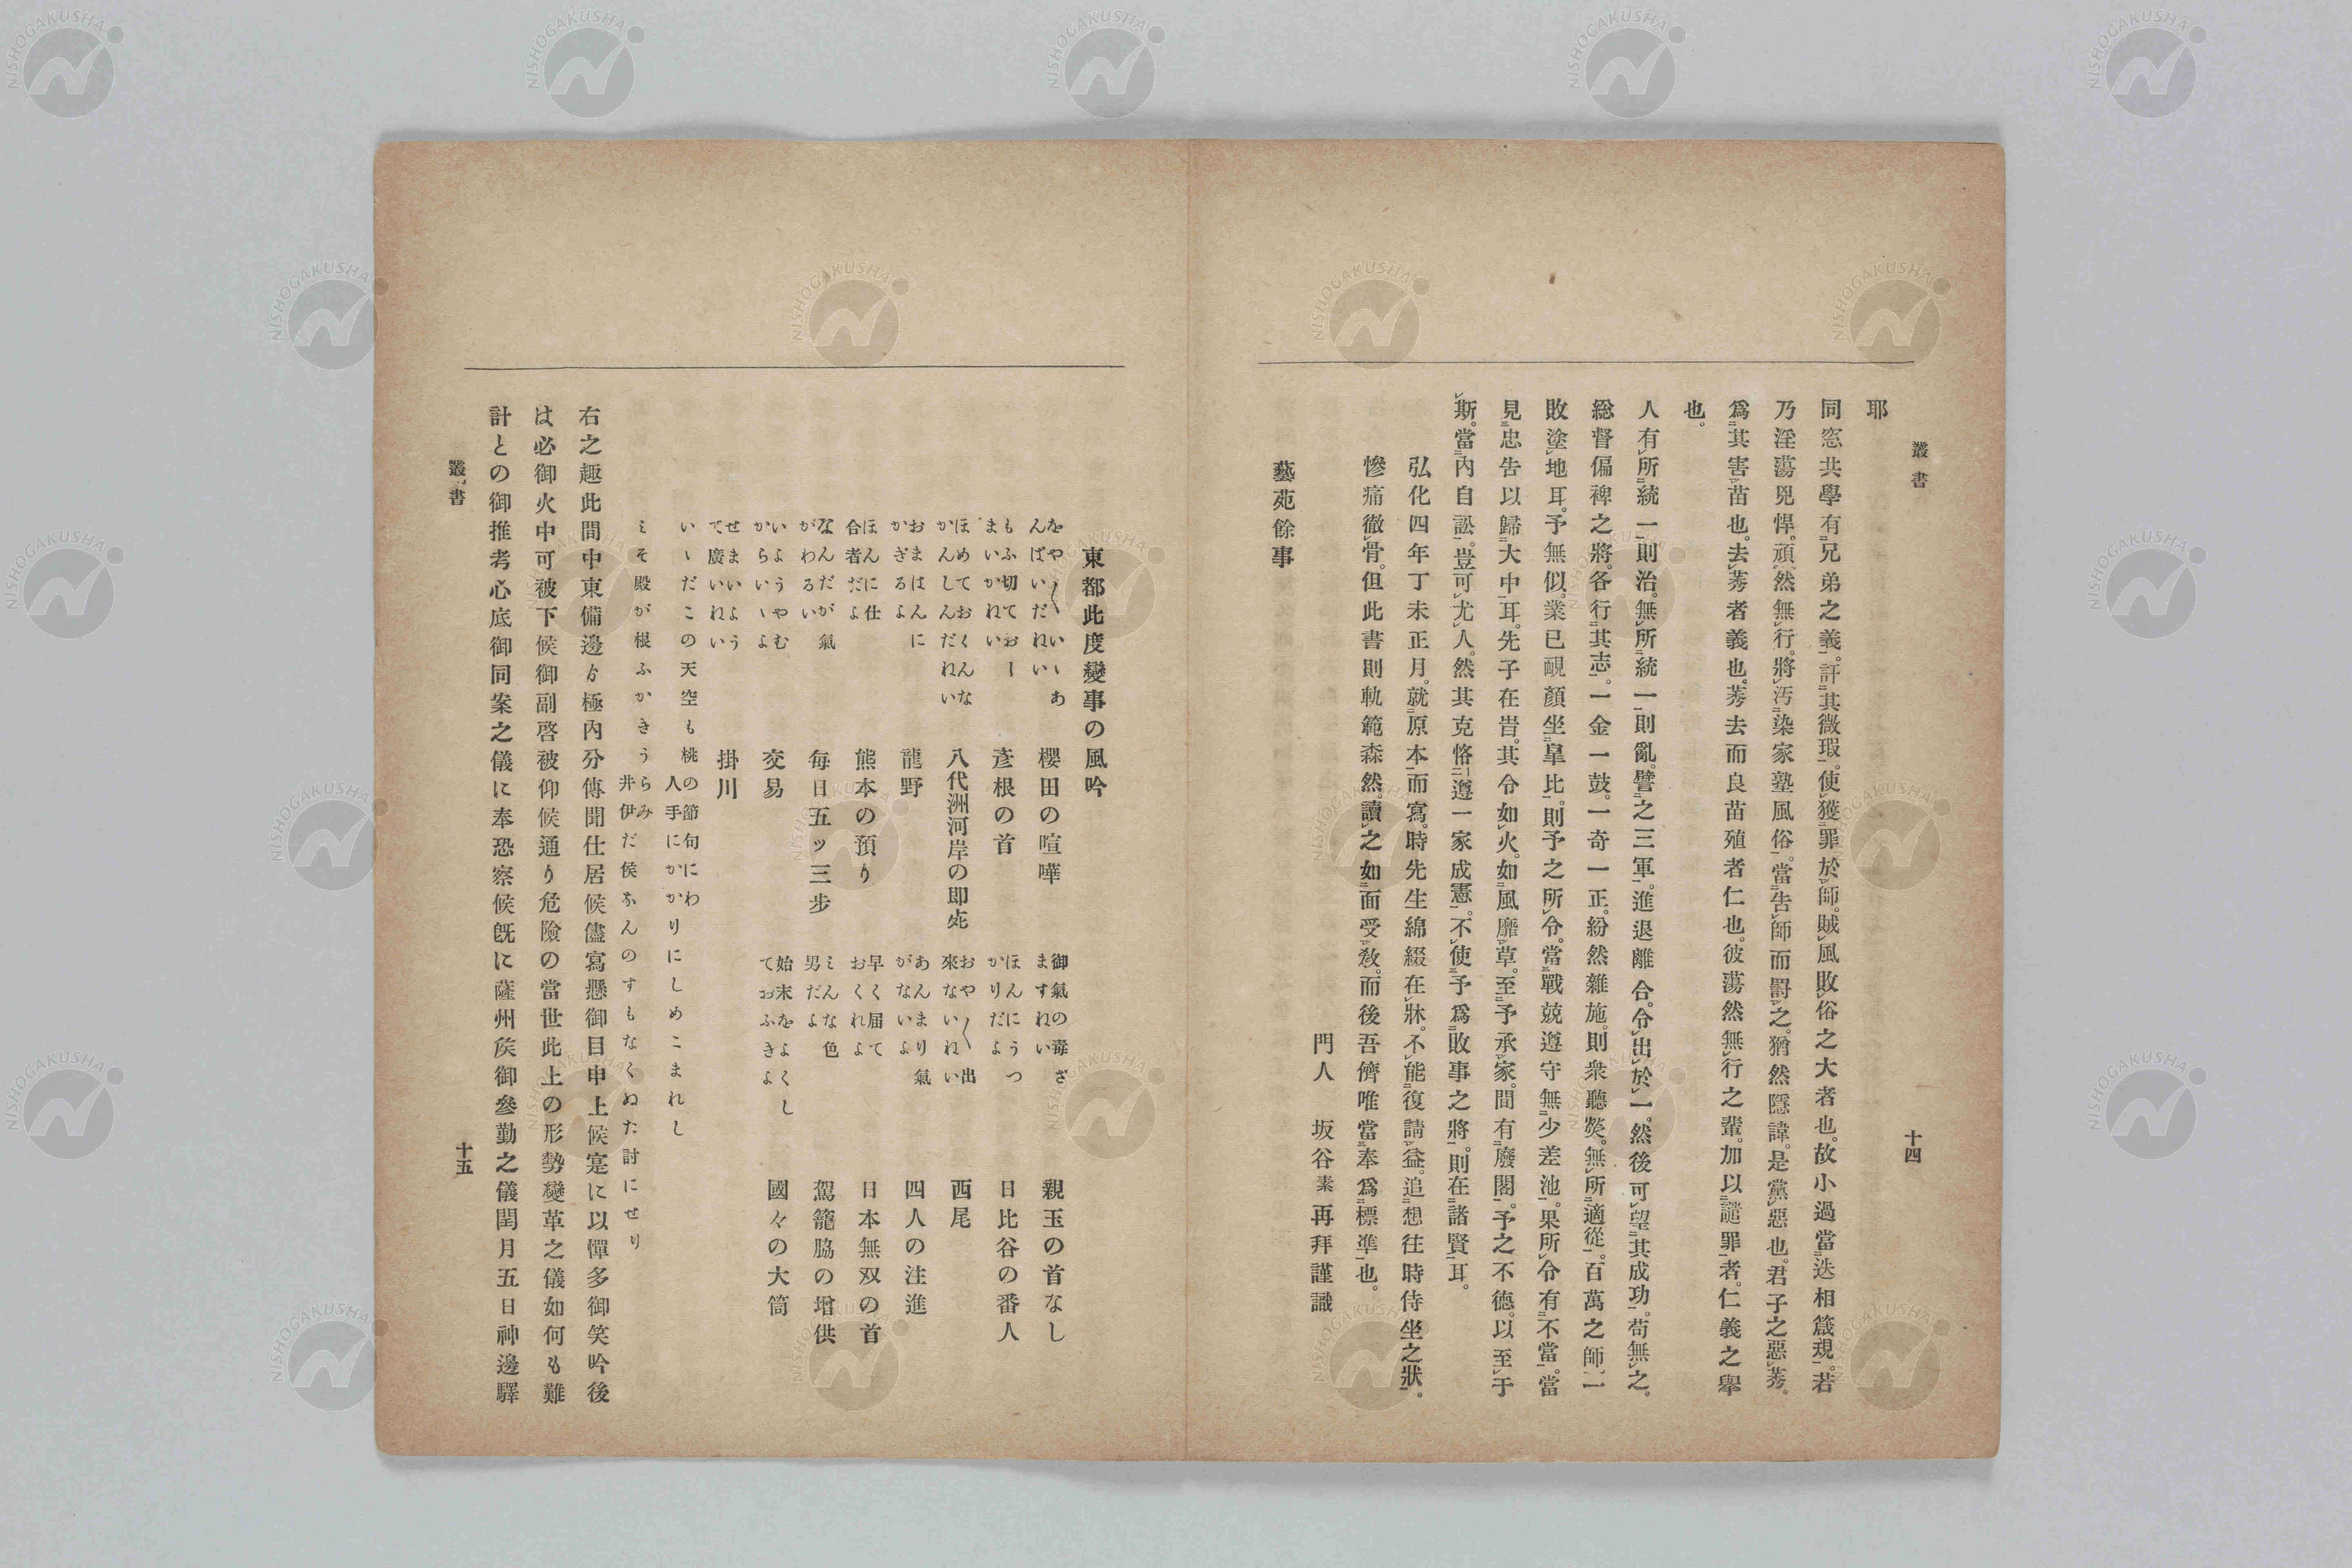 叢書
十四
耶
同窓共學有兄弟之義。訐其微瑕。使獲罪於師。賊風敗俗之大者也。故小過當迭相箴規。若
乃淫蕩兇悍。頑然無行。將汚染家塾風俗。當告師而罰之。猶然隱諱。是黨惡也。君子之惡莠。
爲其害苗也。去莠者義也。莠去而良苗殖者仁也。彼蕩然無行之輩。加以譴罪者。仁義之擧
也。
人有所統一則治。無所統一則亂。譬之三軍。進退離合。令出於一。然後可望其成功。苟無之。
總督偏裨之將。各行其志。一金一鼓。一奇一正。紛然雜施。則衆聽熒。無所適從。百萬之師、一
敗塗地耳。予無似。業已靦顏坐皐比。則予之所令。當戰兢遵守無少差池。果所令有不當。當
見忠告以歸大中耳。先子在時。其令如火。如風靡草。至予承家。間有廢閣。予之不德。以至于
斯。當內自訟。豈可尤人。然其克恪遵一家成憲。不使予爲敗事之將。則在諸賢耳。
弘化四年丁未正月。就原本而寫。時先生綿綴在牀。不能復請益。追想往時侍坐之狀。
慘痛徹骨。但此書則軌範森然。讀之如面受敎。而後吾儕唯當奉爲標準也。
門人 坂谷素再拜謹識
藝苑餘事
東都此度變事の風吟
をや〳〵いゝあんばいだねい
櫻田の喧嘩
御氣の毒さますねい
親玉の首なし
もふ切ておーまいかねい
彥根の首
ほんにうつかりだよ
日比谷の番人
ほめておくんなかんしんだねい
八代洲河岸の即死
おや〳〵出來ないねい
西尾
おまはんにかぎるよ
龍野
あんまり氣がないよ
四人の注進
ほんに仕合者だよ
熊本の預り
早く届ておくれよ
日本無双の首
なんだが氣がわるい
每日五ッ三步
こんな色男だよ
駕籠脇の増供
いようやむからいゝよ
交易
始末をよくしておふきよ
國々の大筒
せまいようて廣いねい
掛川
いゝだこの天空も桃の節句にわ人手にかかりにしめこまれし
こそ殿が根ふかきうらみ井伊だ侯なんのすもなくぬた討にせり
右之趣此間中東備邊ゟ極內分傳聞仕居候儘寫懸御目申上候寔に以憚多御笑吟後
は必御火中可被下候御副啓被仰候通り危險の當世此上の形勢變革之儀如何も難
計との御推考心底御同案之儀に奉恐察候旣に薩州矦御參勤之儀閏月五日神邊驛
叢書
十五